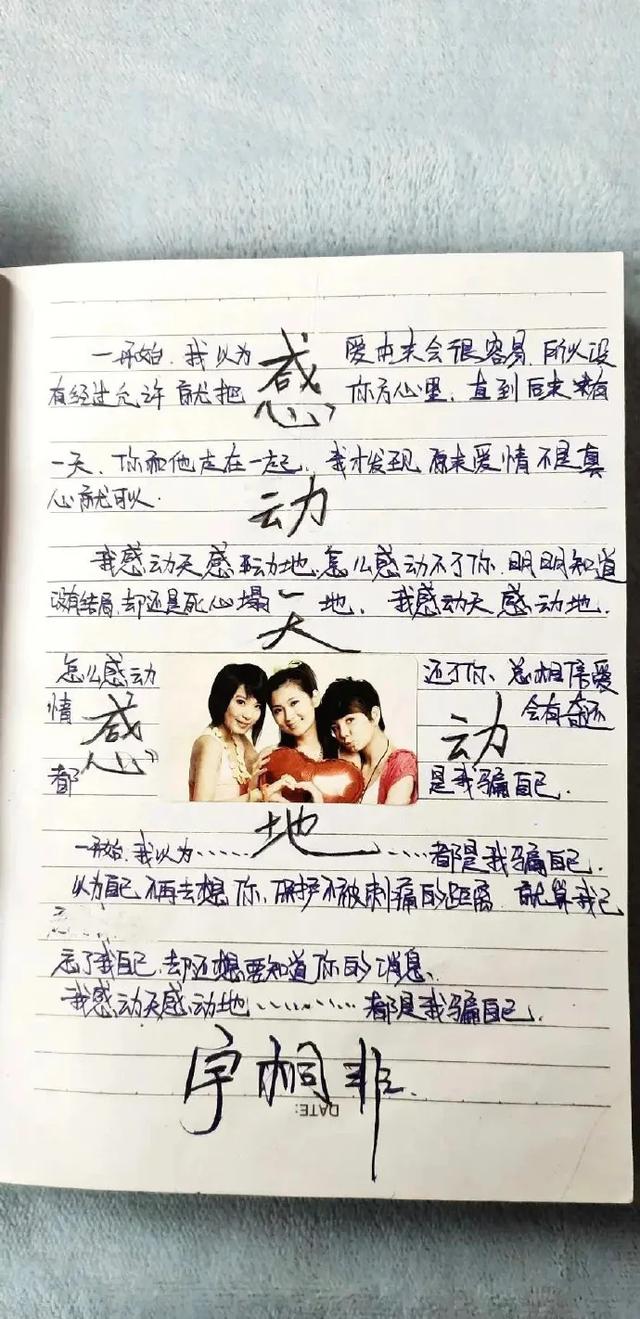 一开始,我以为 感 爱本来会很容易,所以没
有经过允许就把 你放心里,直到后来有
一天,你和他走在一起,我才发现原来爱情不是真
心就可以.
动
我感动天感动地,怎么感动不了你,明明知道
没有结局,却还是死心塌 天 地,我感动天感动地.
怎么感动 还了你,总相信爱
情 感 动 会有奇迹
都 是我骗自己.
一开始,我以为…… 地 ……都是我骗自己.
以为自己不再去想你,保护不被刺痛的距离,就算我已
忘了我自己,却还想要知道你的消息.
我感动天感动地…………都是我骗自己.
宇桐非
DATE: